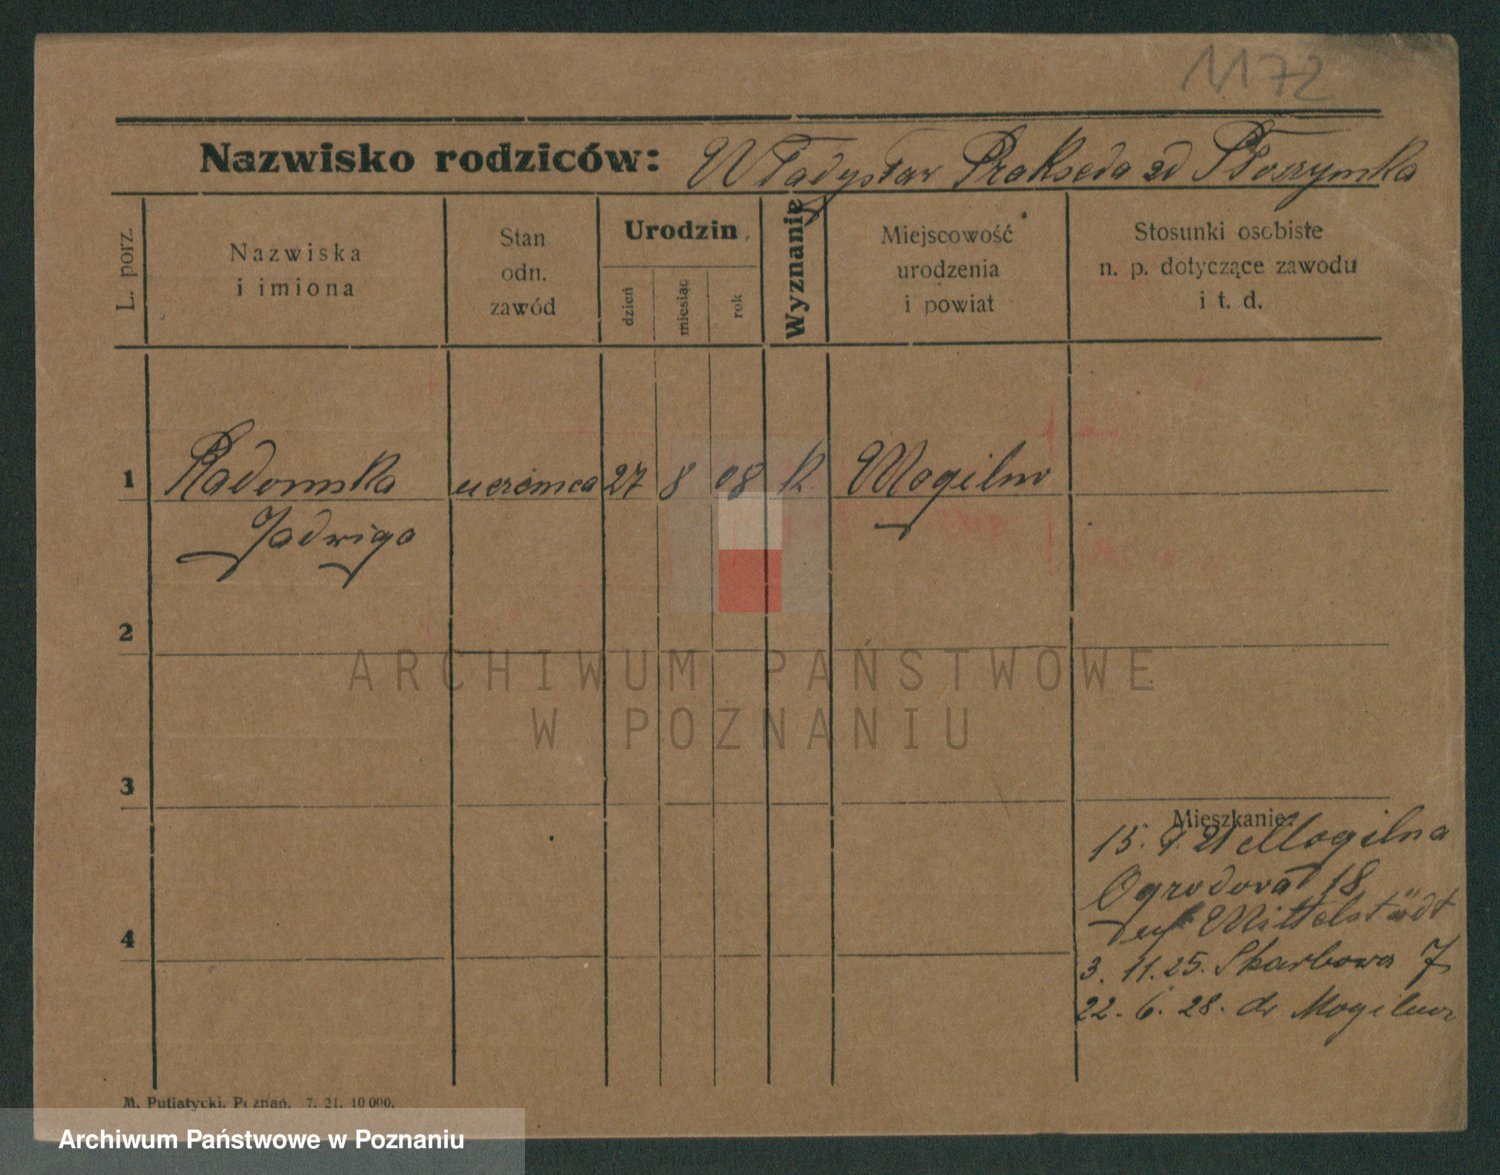 1172
Nazwisko rodziców: Władysław Prakseda zd Płoszymka
L. porz.
Nazwiska
i imiona
Stan
odn.
zawód
Urodzin
dzień
miesiąc
rok
Wyznanie
Miejscowość
urodzenia
i powiat
Stosunki osobiste
n. p. dotyczące zawodu
i t. d.
1 Radomska uczenica 27 8 08 k. Mogilno
Jadwiga
2
ARCHIWUM PAŃSTWOWE
W POZNANIU
3
Mieszkanie:
15. 9. 21 Mogilna
Ogrodowa 18
Mittelstädt
4
3. 11. 25. Skarbowa 7
22. 6. 28. do Mogilna
M. Putiatycki, Poznań. 7. 21. 10 000.
Archiwum Państwowe w Poznaniu